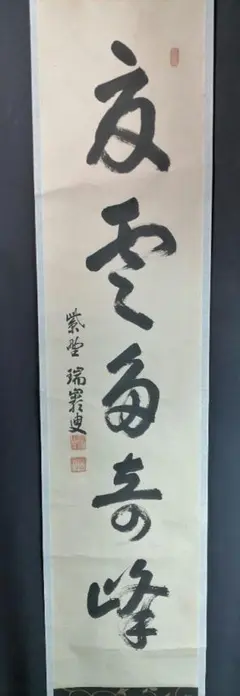 夏雲多奇峰
紫野 瑞巖叟